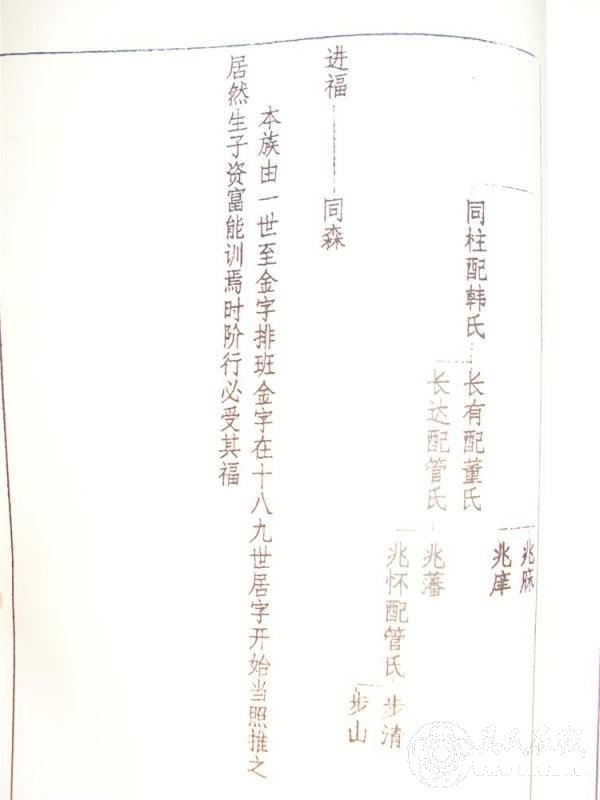 兆庥
兆庠
同柱配韩氏 长有配董氏
长达配管氏 兆藩
兆怀配管氏 步清
步山
进福 同森
本族由一世至金字排班金字在十八九世居字开始当照推之
居然生子资富能训焉时阶行必受其福
吴氏在线